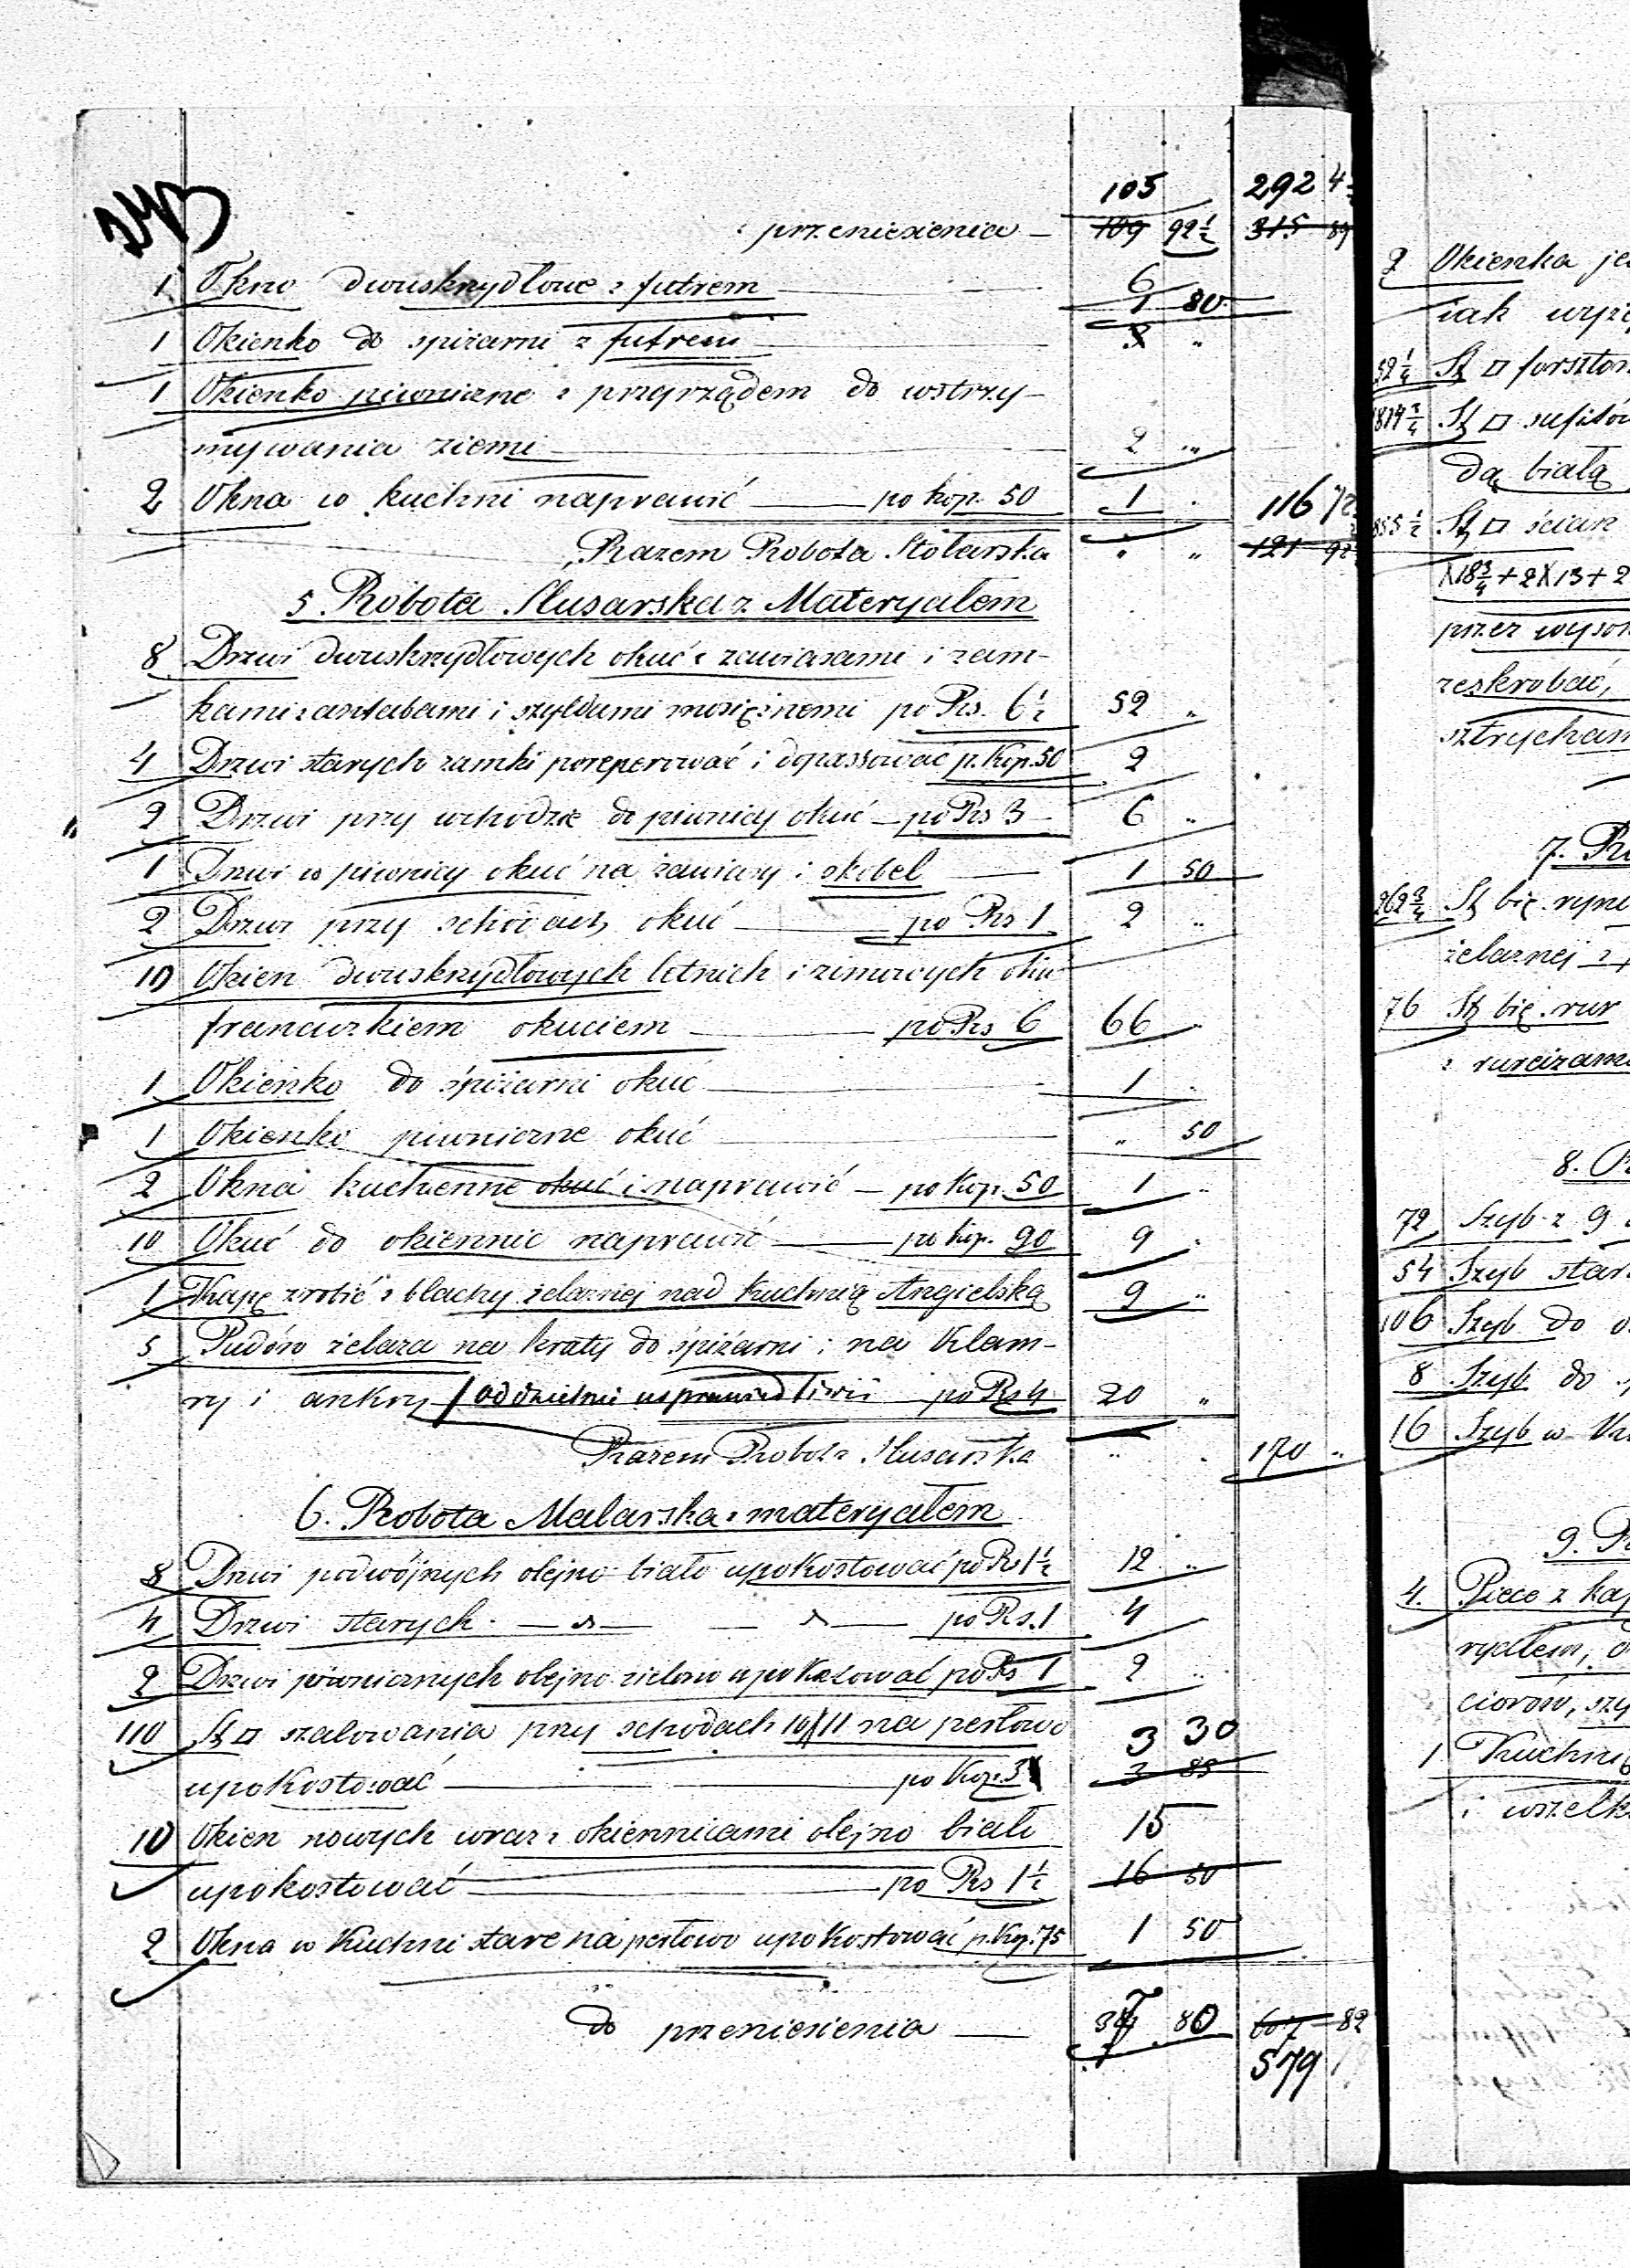 243
105 292 4
przeniesienia — 109 92½ 315 89
1 Okno dwuskrzydłowe z futrem — 6
1 80
1 Okienko do spiżarni z futrem —
1 Okienko piwniczne z przyrządem do wstrzy-
mywania ziemi — 2 "
2 Okna w kuchni naprawić — po kop. 50 1 " 116 72
Razem Robota Stolarska " " 121 92
5 Robota Slusarska z Materyałem
8 Drzwi dwuskrzydłowych okuć z zawiasami i zam-
kami z antabami i szyldami mosiężnemi po Rs. 6½ 52 "
4 Drzwi starych zamki poreperować i dopassować p. Kop. 50 2
2 Drzwi przy wchodzie do piwnicy okuć — po Rs 3 — 6 "
1 Drzwi w piwnicy okuć na zawiasy i skobel — 1 50
2 Drzwi przy schodach okuć — po Rs 1 2 "
10 Okien dwuskrzydłowych letnich i zimowych okuć
francuzkiem okuciem — po Rs 6 66 "
1 Okienko do śpiżarni okuć — 1 "
1 Okienko piwniczne okuć — " 50
2 Okna kuchenne okuć i naprawić — po Kop. 50 1 "
10 Okuć do okiennic naprawić — po kop. 90 9 "
1 Kapę zrobić z blachy żelaznej nad kuchnią Angielską 9 "
5 Pudów żelaza na kraty do śpiżarni i na Klam-
ry i ankry / oddzielnie usprawiedliwić po Rs 4 20 "
Razem Robota Slusarska " " 170 "
6. Robota Malarska z materyałem
8 Drzwi podwójnych olejno biało upokostować po Rs 1½ 12 "
4 Drzwi starych — " — " — po Rs. 1 4
2 Drzwi piwnicznych olejno zielono upokostować po Rs 1 2 "
110 St □ szalowania przy schodach 10/11 na perłowo 3 30
upokostować — po Kop. 3 3 85
10 Okien nowych wraz z okiennicami olejno biało 15
upokostować — po Rs 1½ 16 50
2 Okna w Kuchni stare na perłowo upokostować p. Kop. 75 1 50
do przeniesienia — 37 80 607 82
579
2 Okienka je
jak wyże
52¼ St □ forsztow
1874¾ St □ sufitów
dą białą
855½ St □ ścian
X18¾+2X13+2
przez wysok
zeskrobać,
sztrychan
7. Ro
262¾ St bię. rynn
żelaznej z
76 St bię. rur
z rurcizami
8. R
72 Szyb z 9
54 Szyb star
106 Szyb do o
8 Szyb do
16 Szyb w
9. R
4. Piece z kap
rydlem, o
ciorów, szy
1 Kuchnię
i wszelk